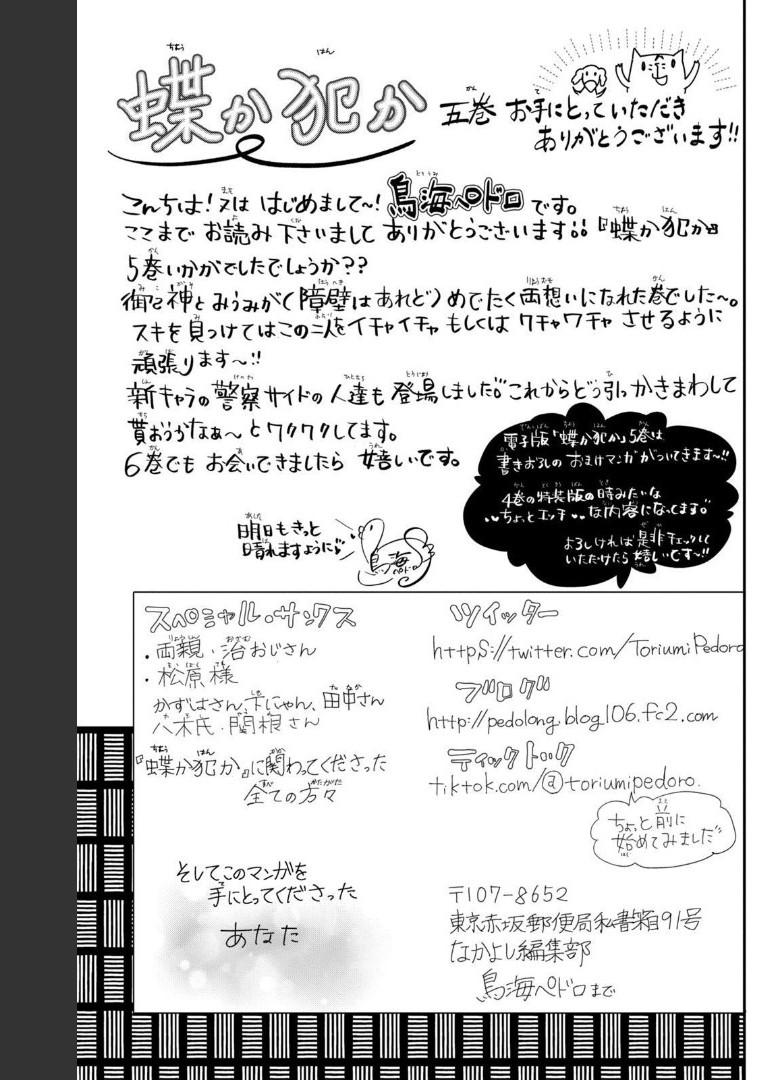 蝶か犯か
五巻 お手にとっていただき
ありがとうございます!!
こんちは!又は はじめまして〜!鳥海ペドロです。
ここまで お読み下さいまして ありがとうございます!!『蝶か犯か』
5巻いかがでしたでしょうか??
御子神とみうみが(障壁はあれど)めでたく両想いになれた巻でした〜。
スキを見つけてはこの二人をイチャイチャ もしくは ワチャワチャ させるように
頑張ります〜!!
新キャラの警察サイドの人達も登場しました!!これからどう引っかきまわして
貰おうかなぁ〜とワクワクしてます。
6巻でも お会いできましたら 嬉しいです。
電子版「蝶か犯か」5巻は
書きおろしの おまけマンガがついてきます〜!!
4巻の特装版の時みたいな
ちょっとエッチな内容になってます。
よろしければ是非チェックして
いただけたら嬉しいです〜!!
明日もきっと
晴れますように♪
鳥海ペドロ
スペシャル・サンクス
・両親・治おじさん
・松原様
かずはさん、下にゃん、田中さん
八木氏・関根さん
『蝶か犯か』に関わってくださった
全ての方々
そしてこのマンガを
手にとってくださった
あなた
ツイッター
https://twitter.com/ToriumiPedoro
ブログ
http://pedolong.blog106.fc2.com
ティックトック
tiktok.com/@toriumipedoro.
ちょっと前に
始めてみました
〒107-8652
東京赤坂郵便局私書箱91号
なかよし編集部
鳥海ペドロまで